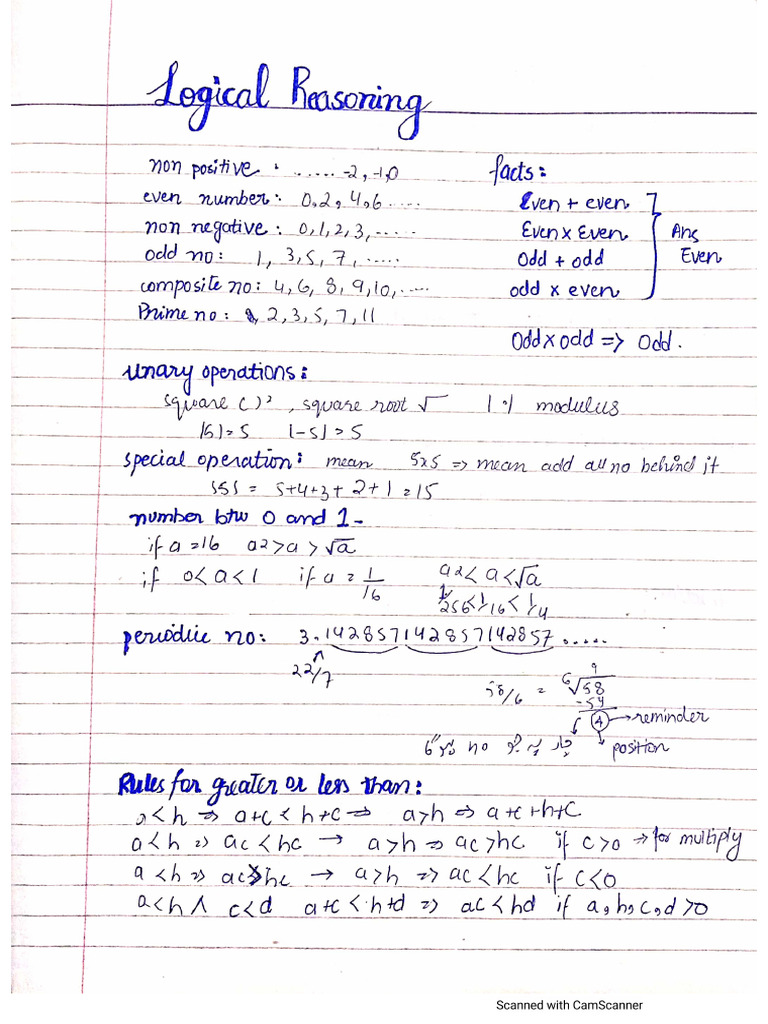 Logical Reasoning
non positive : ......-2, -1, 0
even number: 0, 2, 4, 6 .....
non negative : 0, 1, 2, 3, .....
odd no: 1, 3, 5, 7, .....
composite no: 4, 6, 8, 9, 10, ....
Prime no: 2, 3, 5, 7, 11
facts:
Even + even
Even x Even
odd + odd
odd x even
Ans
Even
Odd x odd => Odd.
Unary operations:
square ( )² , square root √ | · | modulus
|5| = 5 |-5| = 5
special operation: mean 5x5 => mean add all no behind it
= 5+4+3+2+1 = 15
number btw 0 and 1-
if a = 16 a2 > a > √a
if 0 < a < 1 if a = 1/16 a2 < a < √a
1/256 < 1/16 < 1/4
periodic no: 3.142857142857142857.....
22/7
58/6 = 6√58
9
-54
4 → reminder
position
6 no چار
Rules for greater or less than:
a < h => a+c < h+c => a > h => a+c + h+c
a < h => ac < hc → a > h => ac > hc if c > 0 => for multiply
a < h => ac > hc → a > h => ac < hc if c < 0
a < h ∧ c < d a+c < h+d => ac < hd if a, h, c, d > 0
Scanned with CamScanner